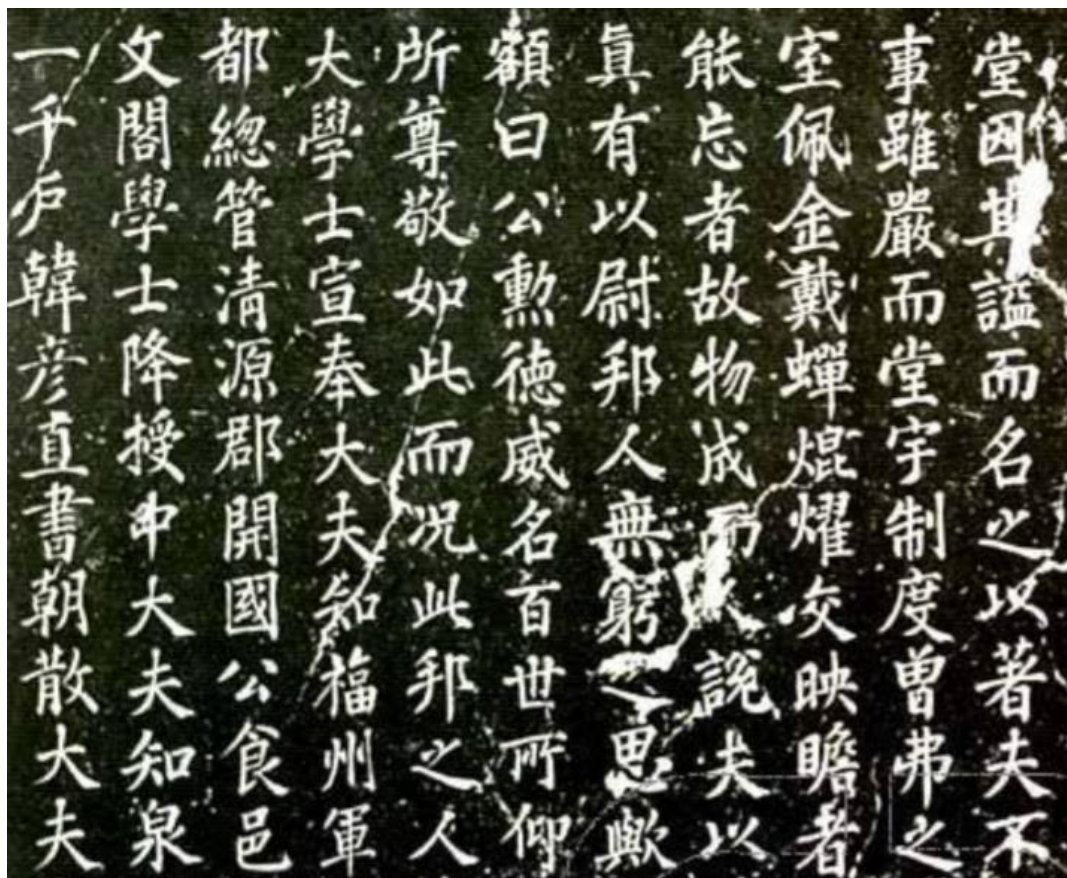 堂因其謚而名之以著夫不
事雖嚴而堂宇制度曽弗之
室佩金戴蟬焜燿交映瞻者
能忘者故物成而説夫以
眞有以尉邦人無窮之思歟
額曰公勲徳威名百世所仰
所尊敬如此而况此邦之人
大學士宣奉大夫知福州軍
都總管清源郡開國公食邑
文閣學士降授中大夫知泉
一千户韓彦直書朝散大夫